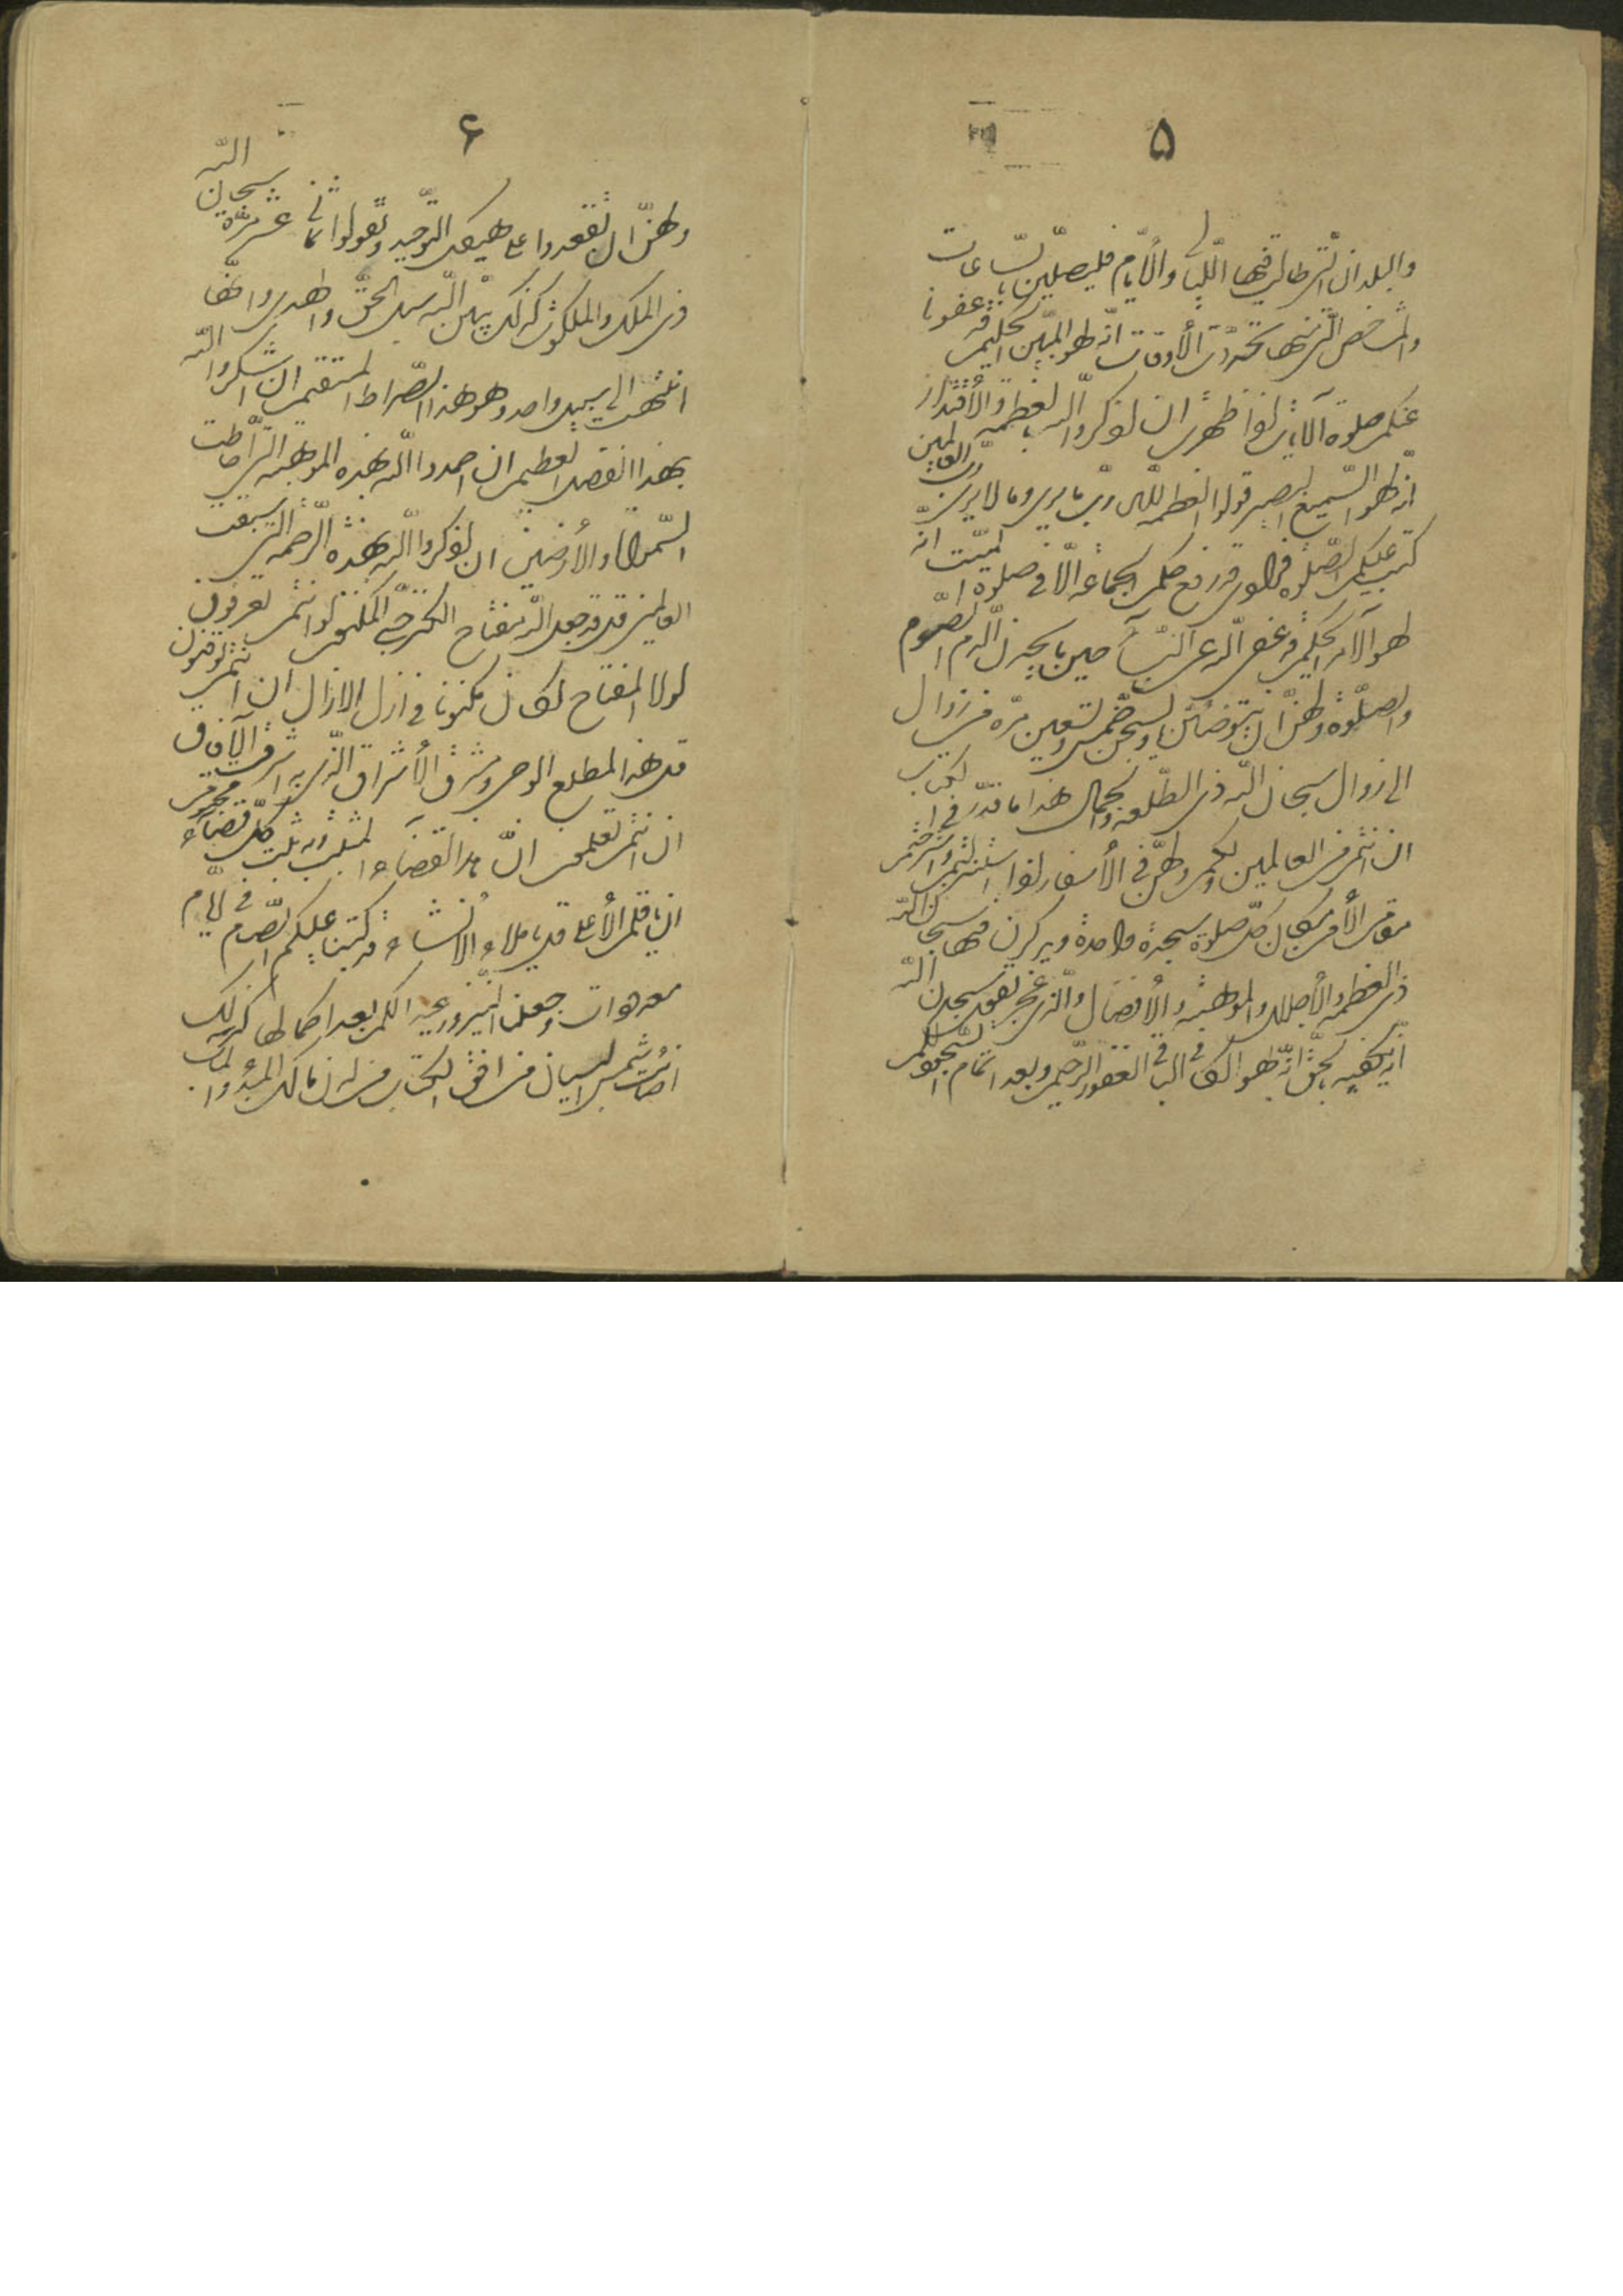 ۵
والبلدان الّتى طالت فيها اللّيالى والأيّام فليصلّين بالسّاعات
والمشاخص الّتى منها تحدّدت الأوقات انّه لهو المبيّن الحكيم قد عفونا
عنكم صلوة الآيات اذا ظهرت ان اذكروا الله بالعظمة والأقتدار
انّه هو السّميع البصير قولوا العظمة لله ربّ ما يرى وما لا يرى ربّ العالمين
كتب عليكم الصّلوة فرادى قد رفع حكم الجماعة الّا فى صلوة الميّت انّه
لهو الآمر الحكيم قد عفى الله عن النّسآء حين ما يجدن الدم الصّوم
والصّلوة ولهنّ ان يتوضّأن ويسبّحن خمس وتسعين مرّة من زوال
الى زوال سبحان الله ذى الطّلعة والجمال هذا ما قدّر فى الكتاب
ان انتم من العالمين ولكم ولهنّ فى الأسفار اذا نزلتم واسترحتم
مقام الأمن مكان كلّ صلوة سجدة واحدة واذكرن فيها سبحان الله
ذى العظمة والأجلال والموهبة والأفضال والّذى عجز يقول سبحان الله
انّه يكفيه بالحقّ انّه لهو الكافى الباقى الغفور الرّحيم وبعد اتمام السّجود لكم
۶
ولهنّ ان تقعدوا على هيكل التّوحيد وتقولوا ثمانى عشرة مرّة سبحان الله
ذى الملك والملكوت كذلك يبيّن الله سبل الحقّ والهدى وانّها
انتهت الى سبيل واحد وهو هذا الصّراط المستقيم ان اشكروا الله
بهذا الفضل العظيم ان احمدوا الله بهذه الموهبة الّتى احاطت
السّموات والأرضين ان اذكروا الله بهذه الرّحمة الّتى سبقت
العالمين قل قد جعل الله مفتاح الكنز حبّى المكنون لو انتم تعرفون
لولا المفتاح لكان مكنونا فى ازل الازال لو انتم توقنون
قل هذا لمطلع الوحى ومشرق الأشراق الّذى به اشرقت الآفاق
لو انتم تعلمون انّ هذا لقضآء المثبت وبه ثبت كلّ قضآء محتوم
ان يا قلم الأعلى قل يا ملأ الانشآء قد كتبنا عليكم الصّيام فى ايّام
معدودات وجعلنا النّيروز عيدا لكم بعد اكمالها كذلك
اضآئت شمس البيان من افق الكتاب من لدن مالك المبدء والمآب